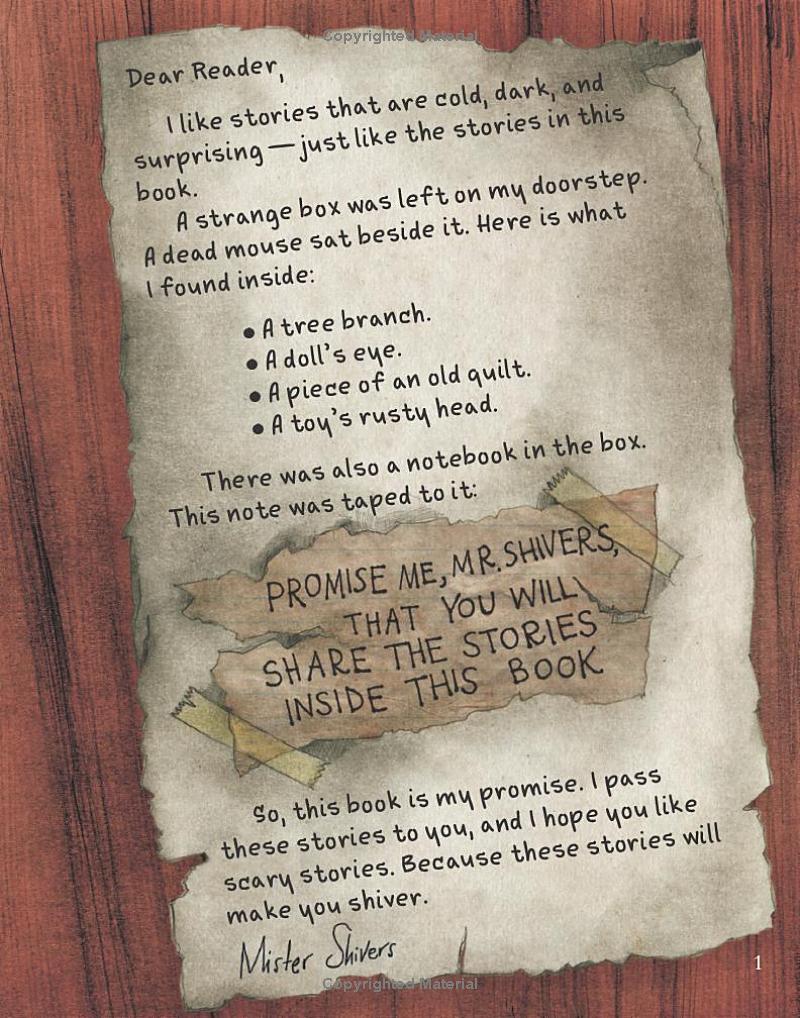 Copyrighted Material
Dear Reader,
I like stories that are cold, dark, and
surprising — just like the stories in this
book.
A strange box was left on my doorstep.
A dead mouse sat beside it. Here is what
I found inside:
• A tree branch.
• A doll's eye.
• A piece of an old quilt.
• A toy's rusty head.
There was also a notebook in the box.
This note was taped to it:
PROMISE ME, MR. SHIVERS,
THAT YOU WILL
SHARE THE STORIES
INSIDE THIS BOOK
So, this book is my promise. I pass
these stories to you, and I hope you like
scary stories. Because these stories will
make you shiver.
Mister Shivers
1
Copyrighted Material